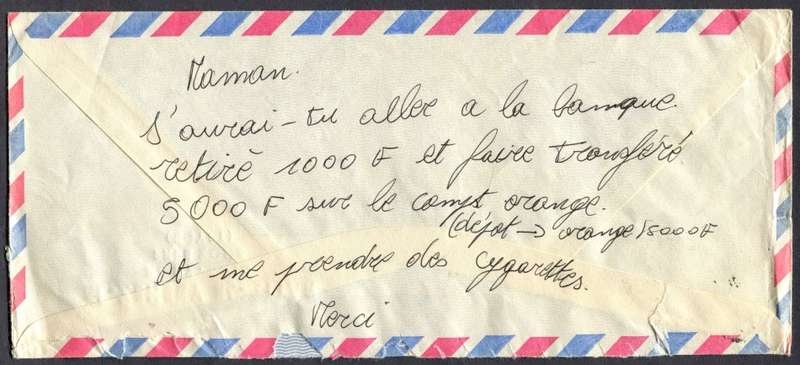 Maman.
s'aurai-tu aller a la banque.
retiré 1000 F et faire transféré
5000 F sur le compt orange.
(dépot → orange 5000F
et me prendre des cygarettes.
Merci